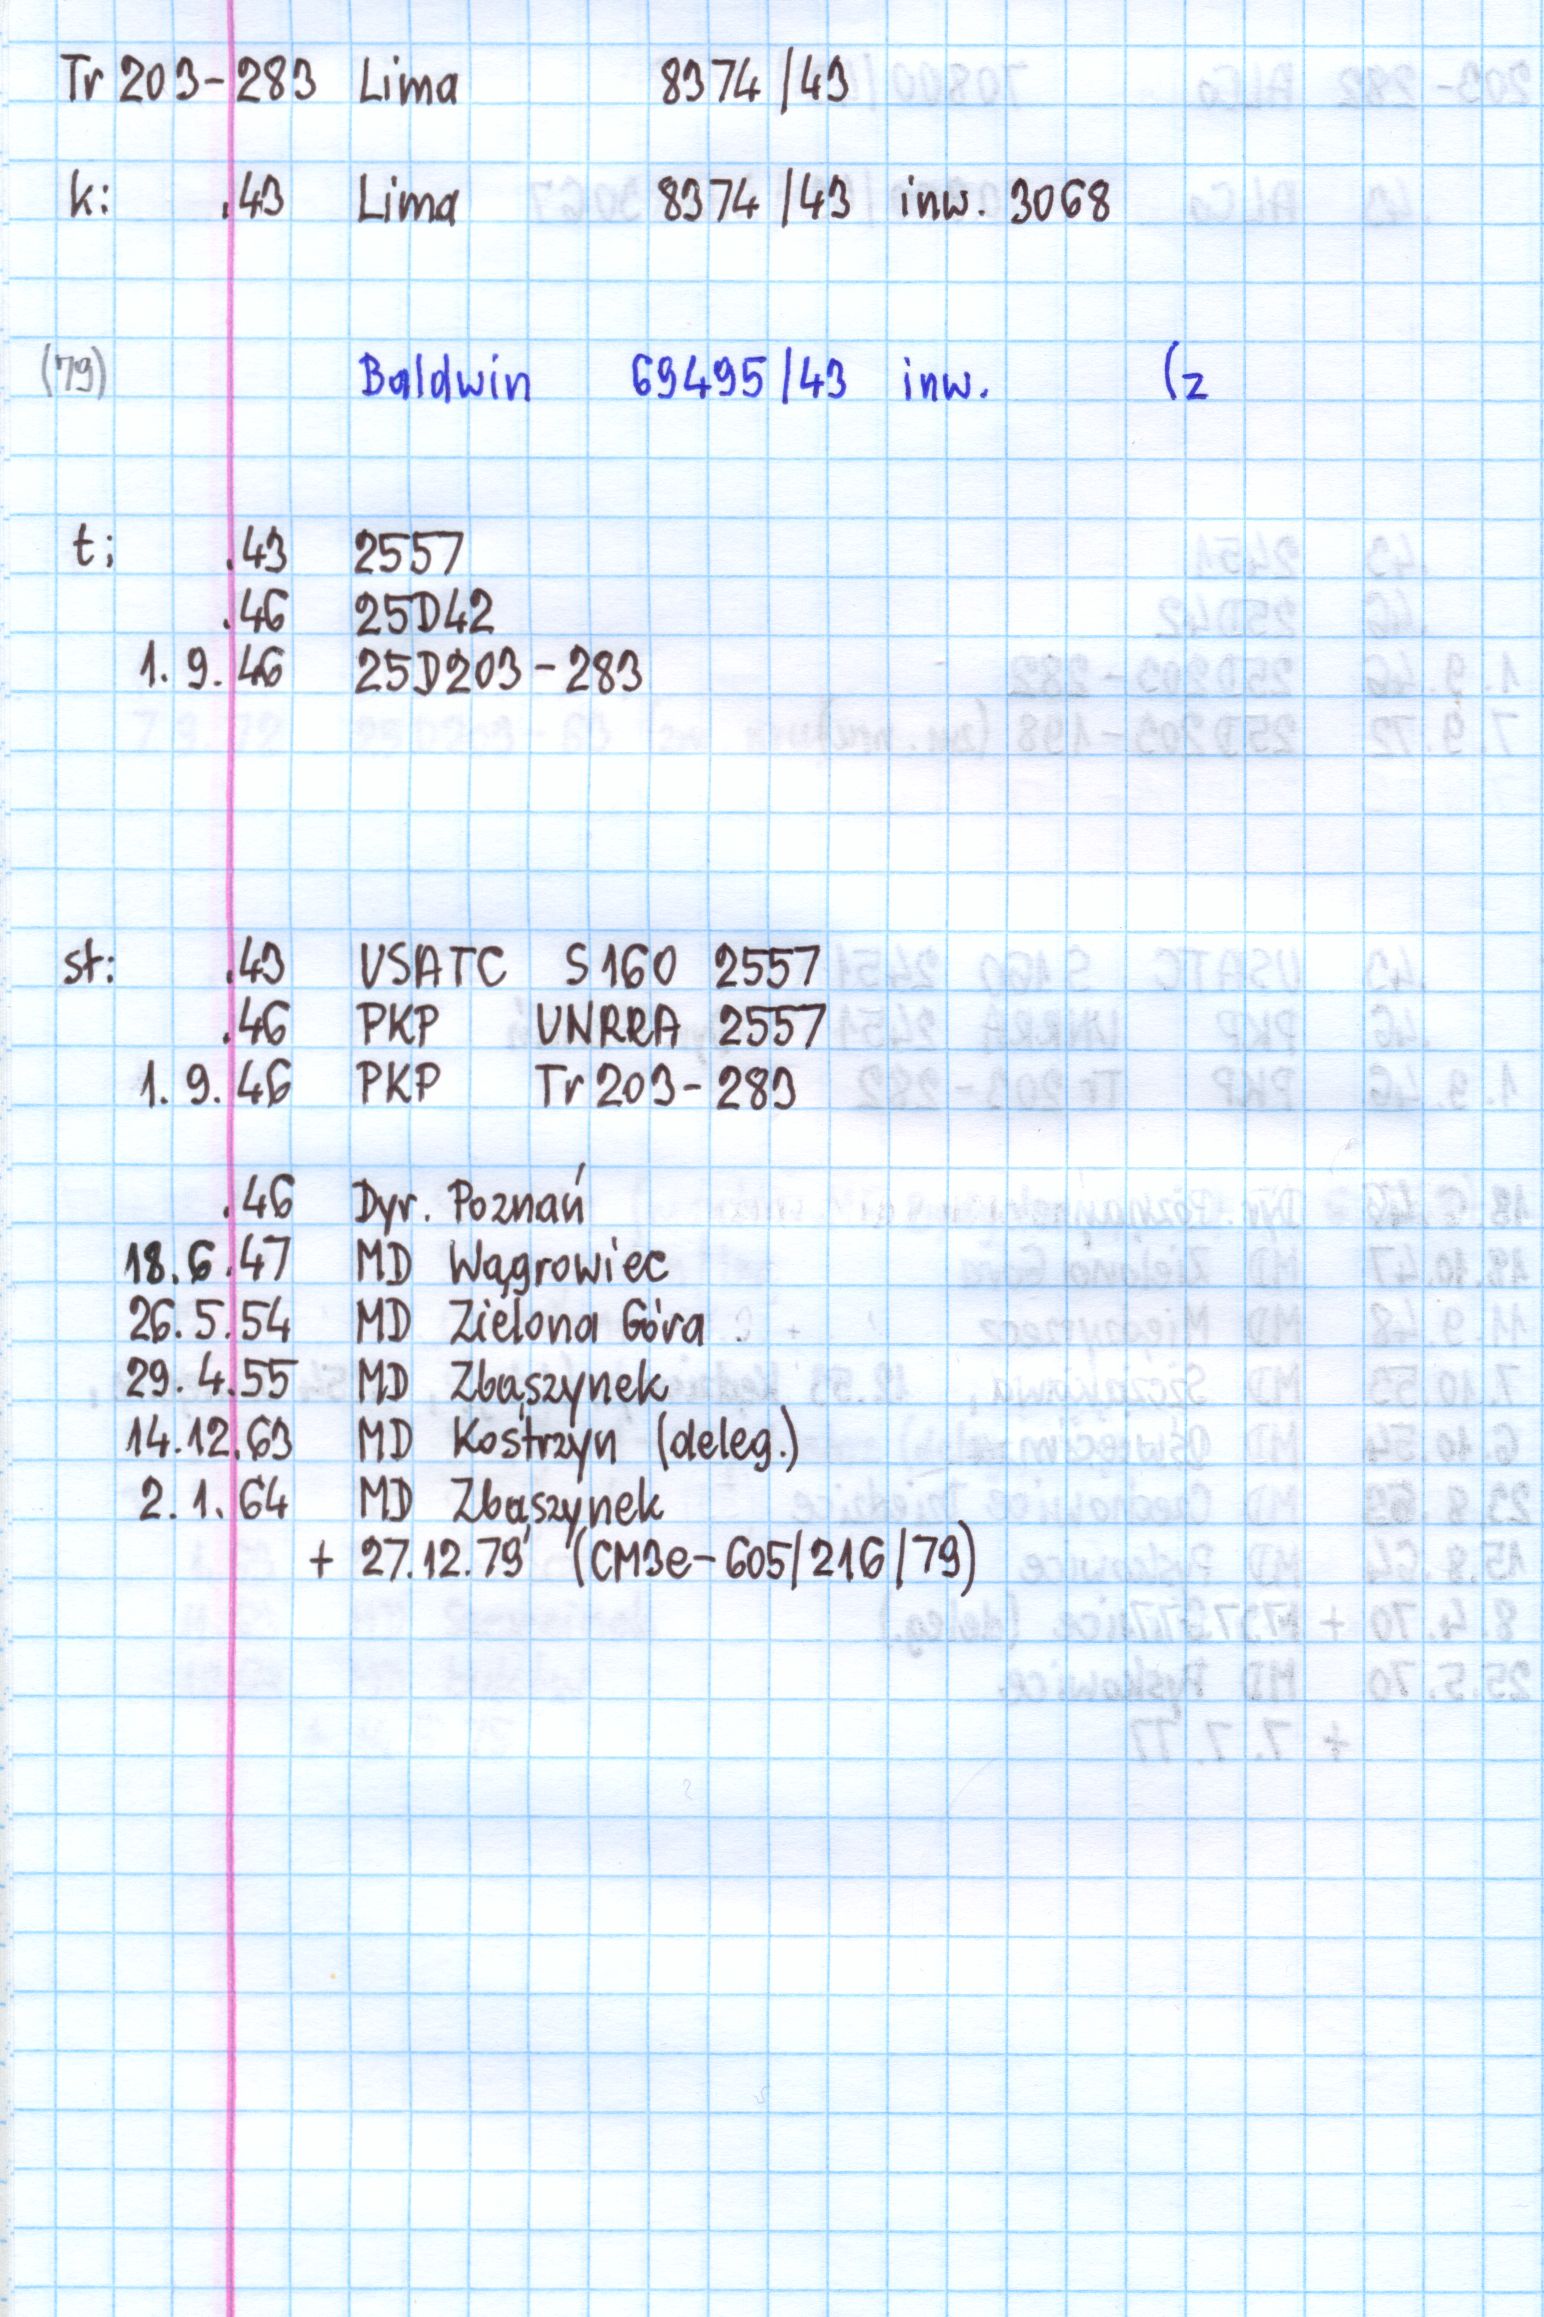 Tr 203-283 Lima 8374/43
k: .43 Lima 8374/43 inw. 3068
(79) Baldwin 69495/43 inw. (z
t: .43 2557
.46 25D42
1.9.46 25D203-283
st: .43 USATC S160 2557
.46 PKP UNRRA 2557
1.9.46 PKP Tr 203-283
.46 Dyr. Poznań
18.6.47 MD Wągrowiec
26.5.54 MD Zielona Góra
29.4.55 MD Zbąszynek
14.12.63 MD Kostrzyn (deleg.)
2.1.64 MD Zbąszynek
+ 27.12.79 (CM3e-605/216/79)